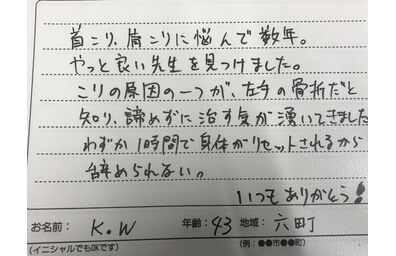 首こり、肩こりに悩んで数年。
やっと良い先生を見つけました。
こりの原因の一つが、左手の骨折だと
知り、諦めずに治す気が湧いてきました
わずか1時間で身体がリセットされるから
辞められない。
いつもありがとう!
お名前: K.W 年齢: 43 地域: 六町
(イニシャルでもOKです) (例:●●市●●町)